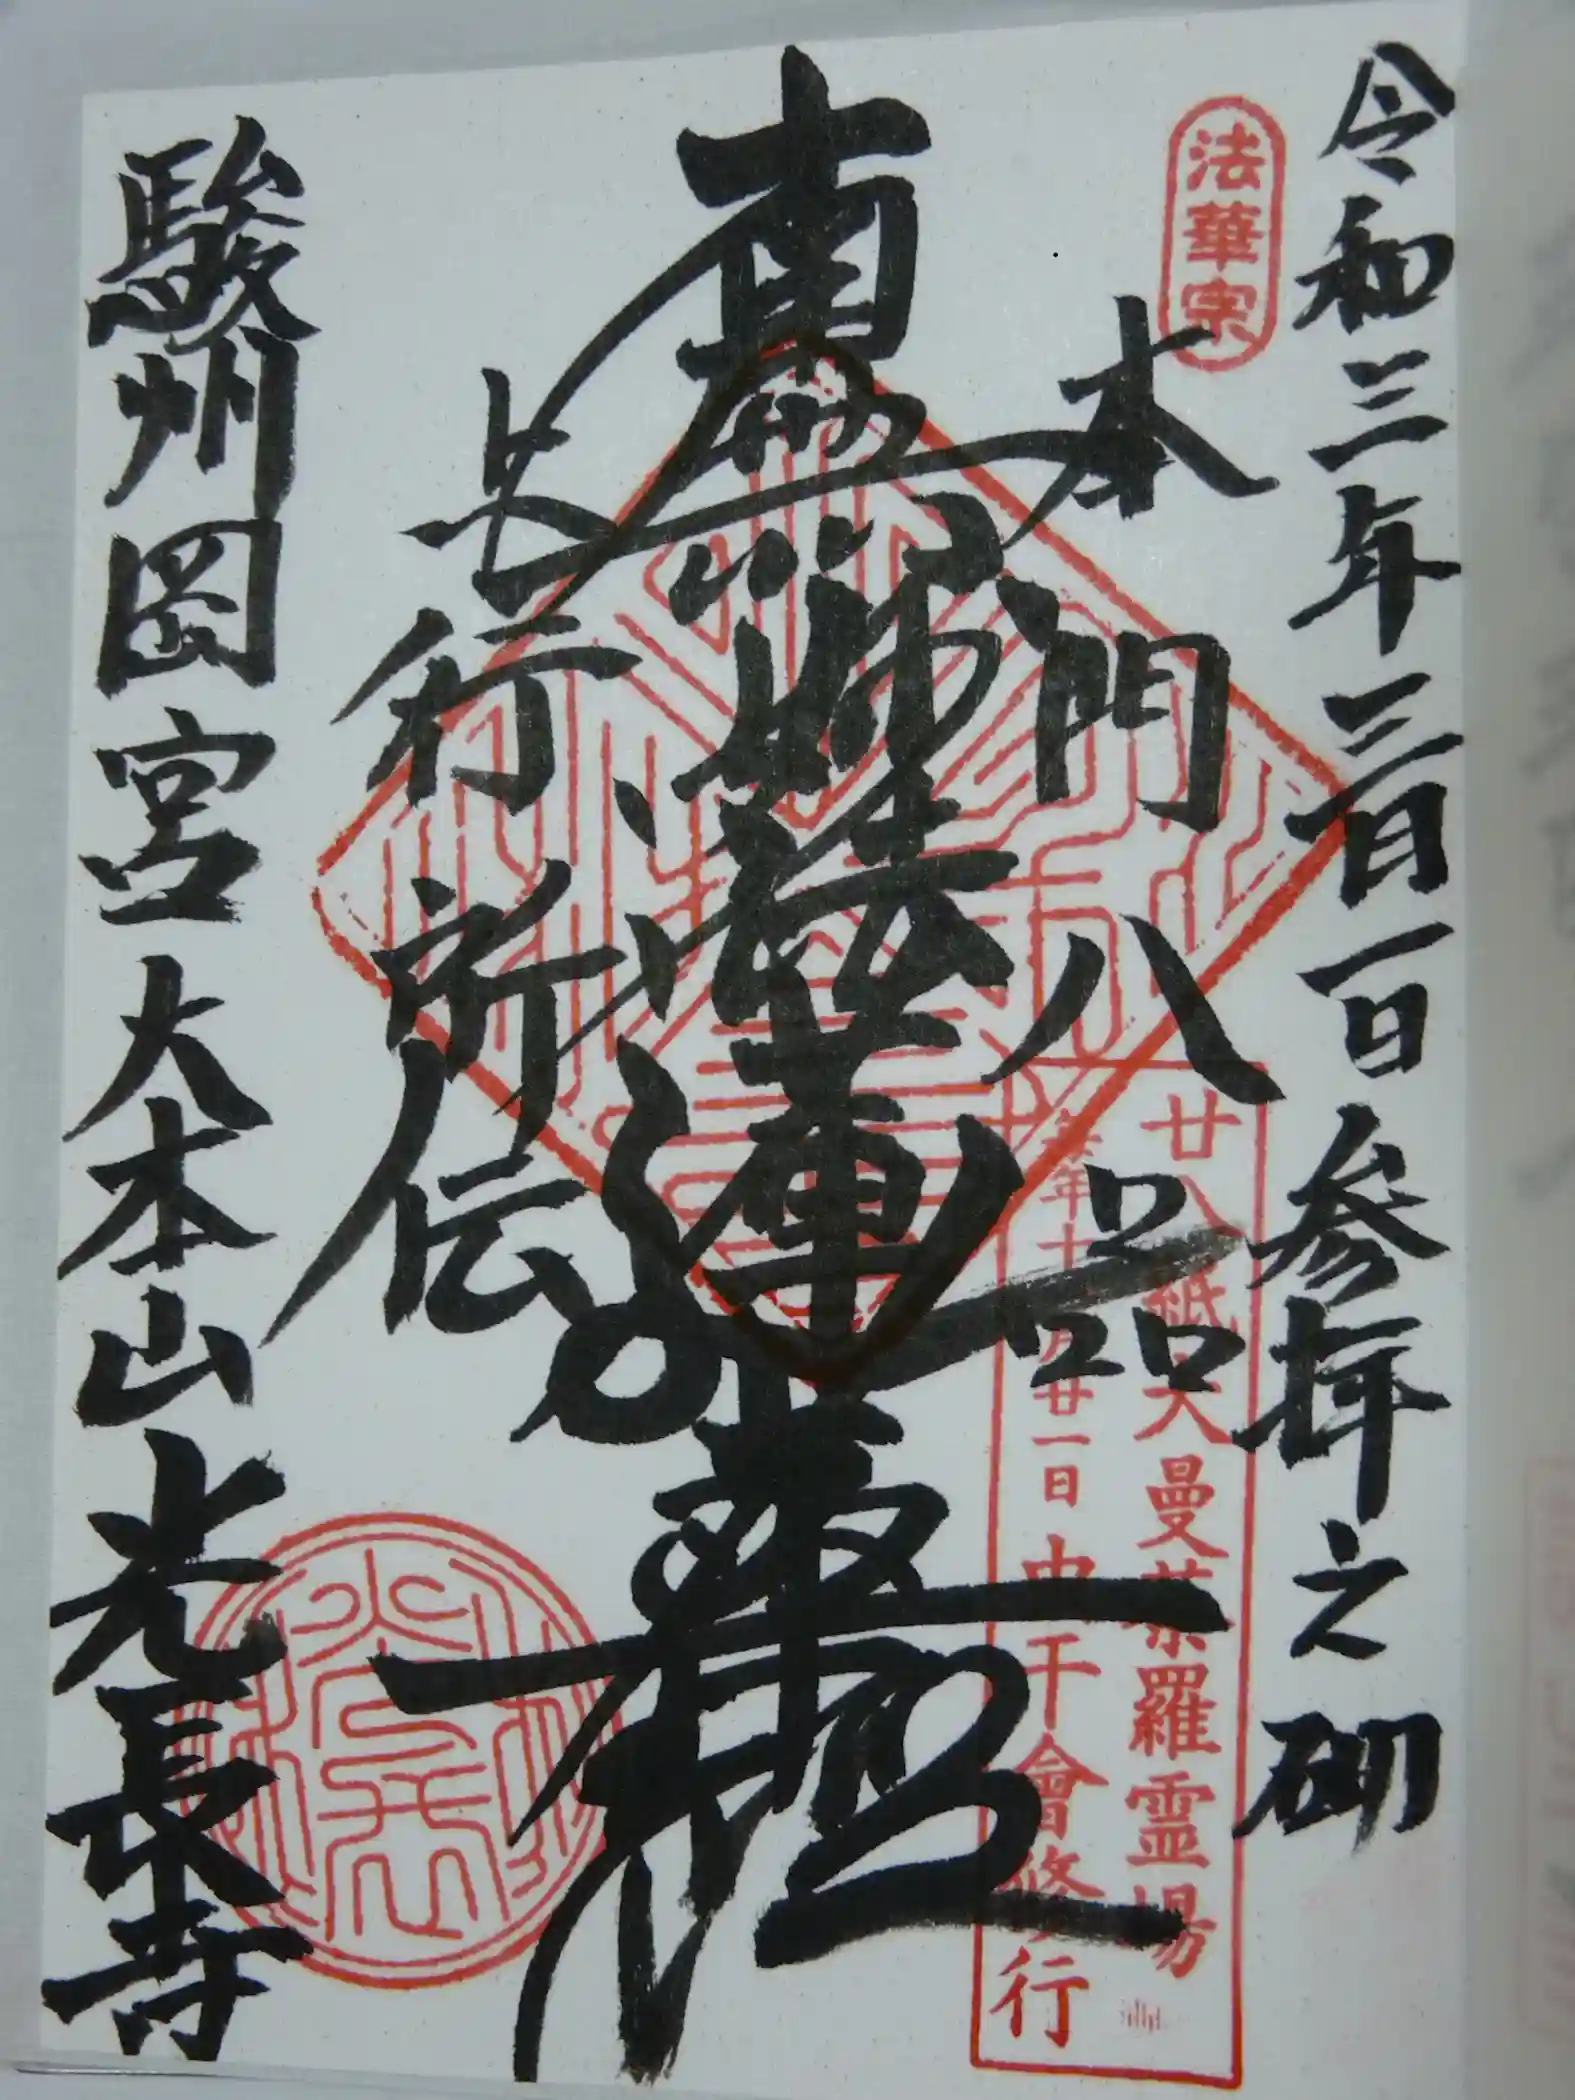 令和三年三月一日参拝之砌
法華宗
本門八品
南無妙法蓮華経
上行所伝
廿八紙大曼荼羅霊場
毎年十月廿一日虫干會修行
駿州岡宮大本山光長寺